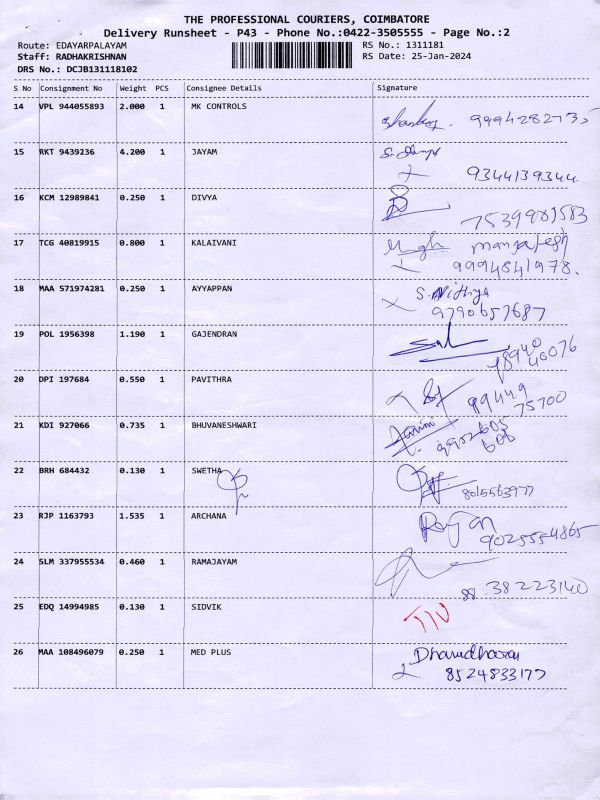 THE PROFESSIONAL COURIERS, COIMBATORE
Delivery Runsheet - P43 - Phone No.:0422-3505555 - Page No.:2
Route: EDAYARPALAYAM RS No.: 1311181
Staff: RADHAKRISHNAN RS Date: 25-Jan-2024
DRS No.: DCJB131118102
S No Consignment No Weight PCS Consignee Details Signature
14 VPL 944055893 2.000 1 MK CONTROLS
9994282735
15 RKT 9439236 4.200 1 JAYAM
9344139344
16 KCM 12989841 0.250 1 DIVYA
7539983583
17 TCG 40819915 0.800 1 KALAIVANI
9994841978.
18 MAA 571974281 0.250 1 AYYAPPAN
S. Nithya
9790657687
19 POL 1956398 1.190 1 GAJENDRAN
20 DPI 197684 0.550 1 PAVITHRA
99449
75700
21 KDI 927066 0.735 1 BHUVANESHWARI
22 BRH 684432 0.130 1 SWETHA
8015563977
23 RJP 1163793 1.535 1 ARCHANA
9025554865
24 SLM 337955534 0.460 1 RAMAJAYAM
88 38 223140
25 EDQ 14994985 0.130 1 SIDVIK
26 MAA 108496079 0.250 1 MED PLUS
8524833177